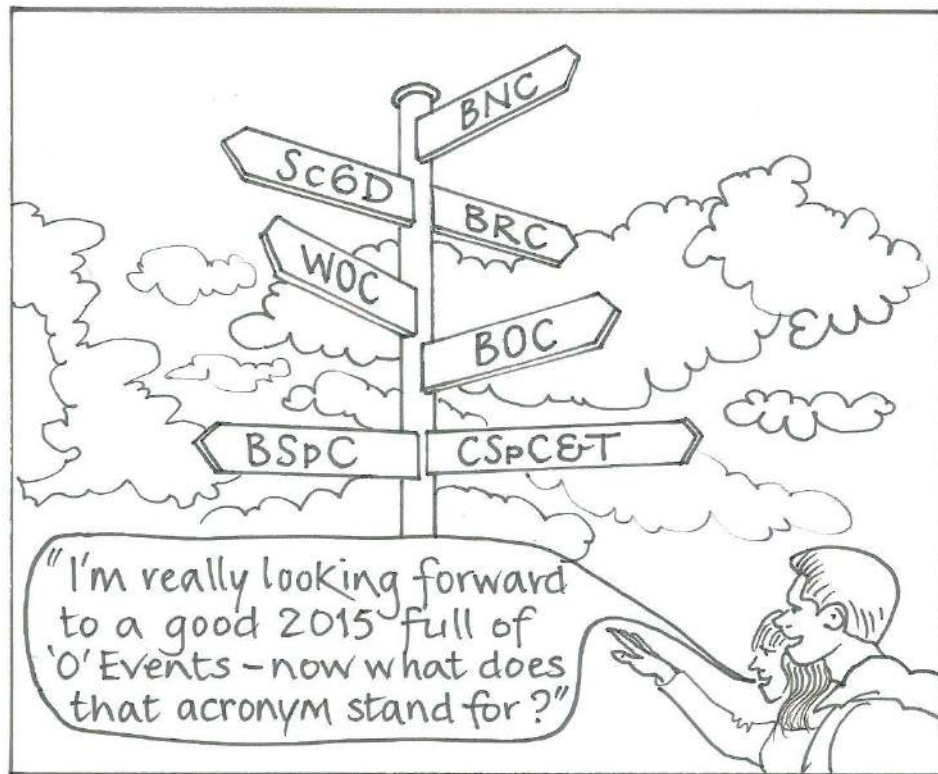 BNC
Sc6D
BRC
WOC
BOC
BSpC
CSpC&T
"I'm really looking forward
to a good 2015 full of
'O' Events - now what does
that acronym stand for?"